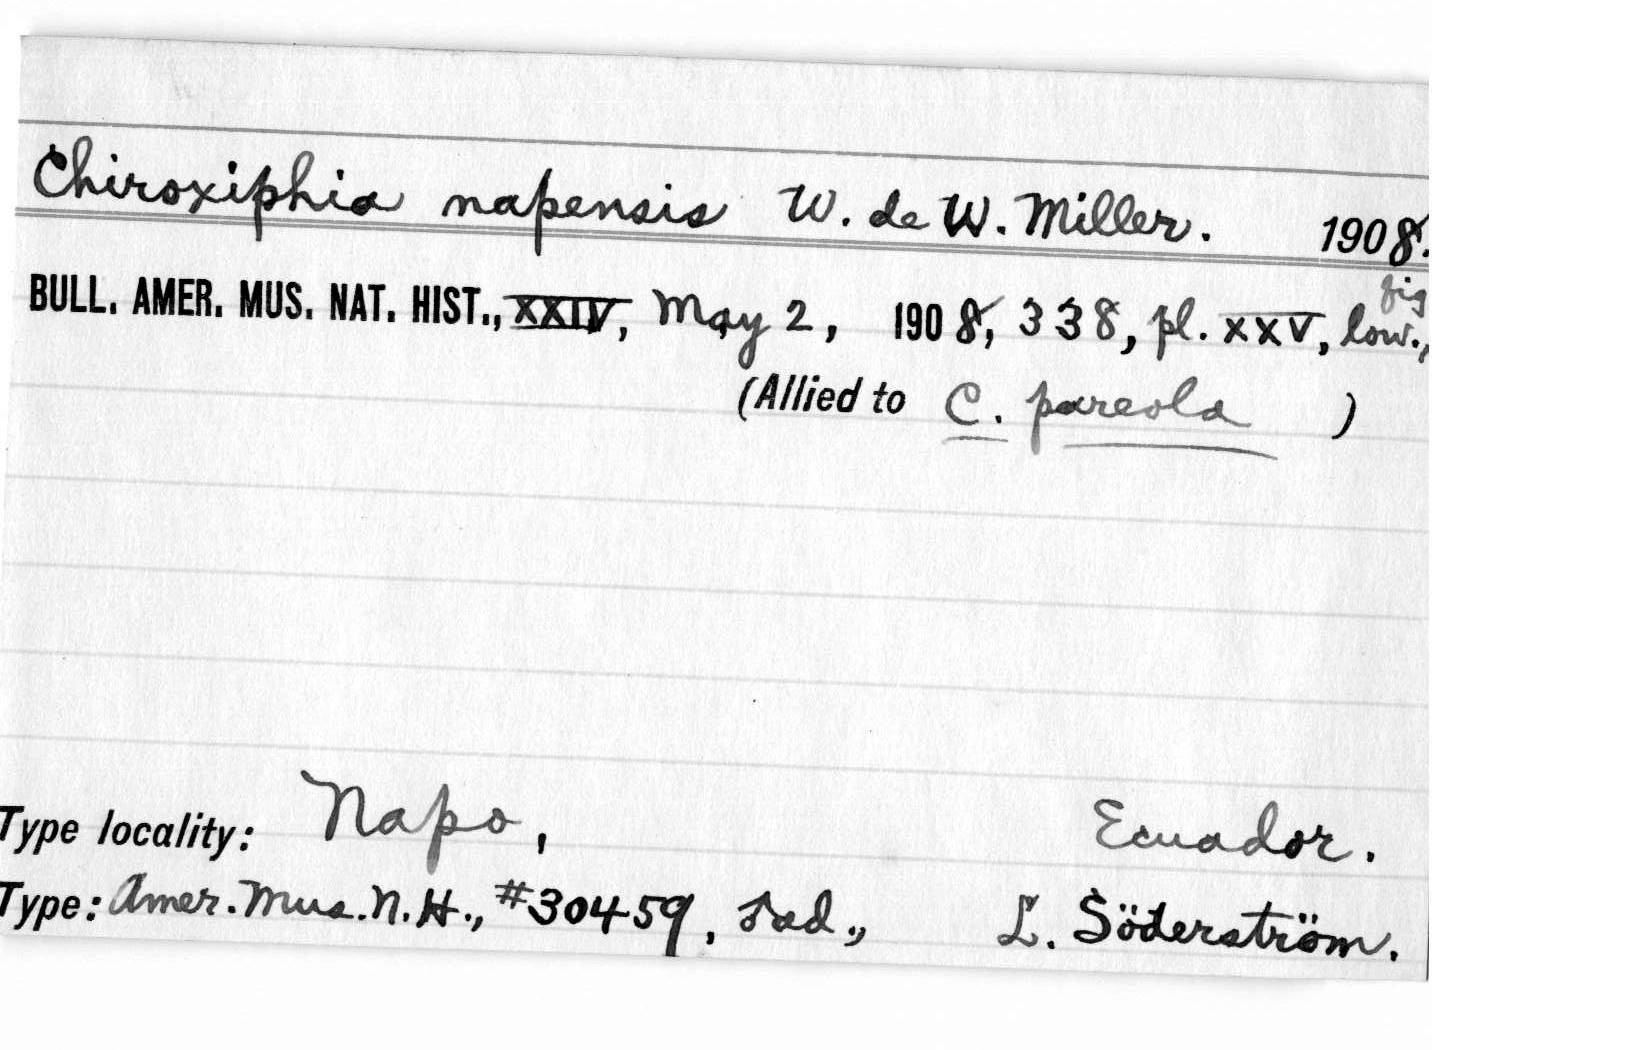 Chiroxiphia napensis W. de W. Miller. 1908.
BULL. AMER. MUS. NAT. HIST., XXIV, May 2, 1908, 338, pl. XXV, low., fig
(Allied to C. pareola )
Type locality: Napo, Ecuador.
Type: Amer. Mus. N. H., #30459, ♂ad., L. Söderström.